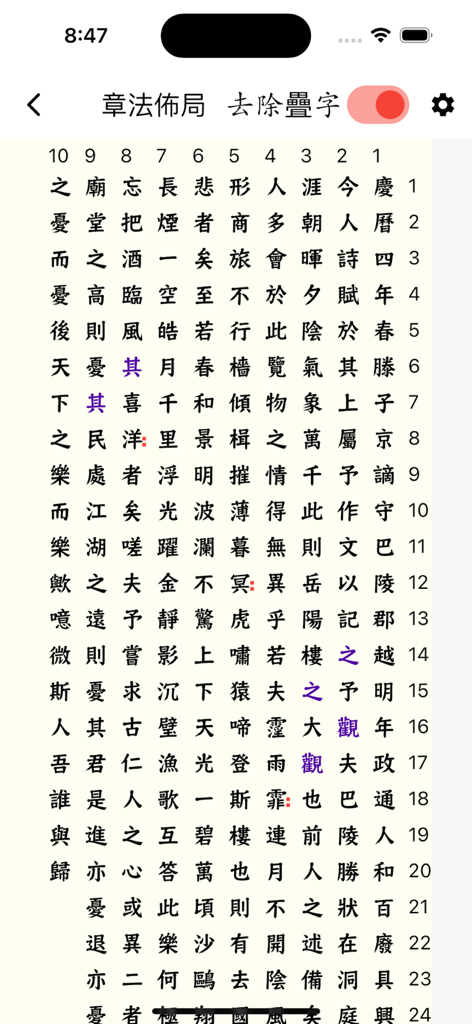 8:47
章法佈局 去除疊字
10 9 8 7 6 5 4 3 2 1
慶曆四年春滕子京謫守巴陵郡越明年政通人和百廢具興
今人詩賦於其上屬予作文以記之予觀夫巴陵勝狀在洞庭
涯朝暉夕陰氣象萬千此則岳陽樓之大觀也前人之述備矣
人多會於此覽物之情得無異乎若夫霪雨霏:連月不開陰風
形商旅不行檣傾楫摧薄暮冥:虎嘯猿啼登斯樓也則有去國
悲者矣至若春和景明波瀾不驚上下天光一碧萬頃沙鷗翔
長煙一空皓月千里浮光躍金靜影沉璧漁歌互答此樂何極
忘把酒臨風其喜洋:者矣嗟夫予嘗求古仁人之心或異二者
廟堂之高則憂其民處江湖之遠則憂其君是進亦憂退亦憂
之憂而憂後天下之樂而樂歟噫微斯人吾誰與歸
1
2
3
4
5
6
7
8
9
10
11
12
13
14
15
16
17
18
19
20
21
22
23
24